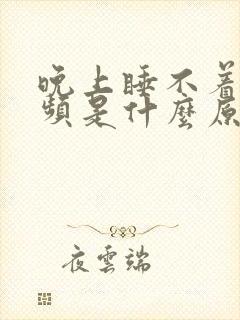 晚上睡不着
頻是什麼原
夜雲端